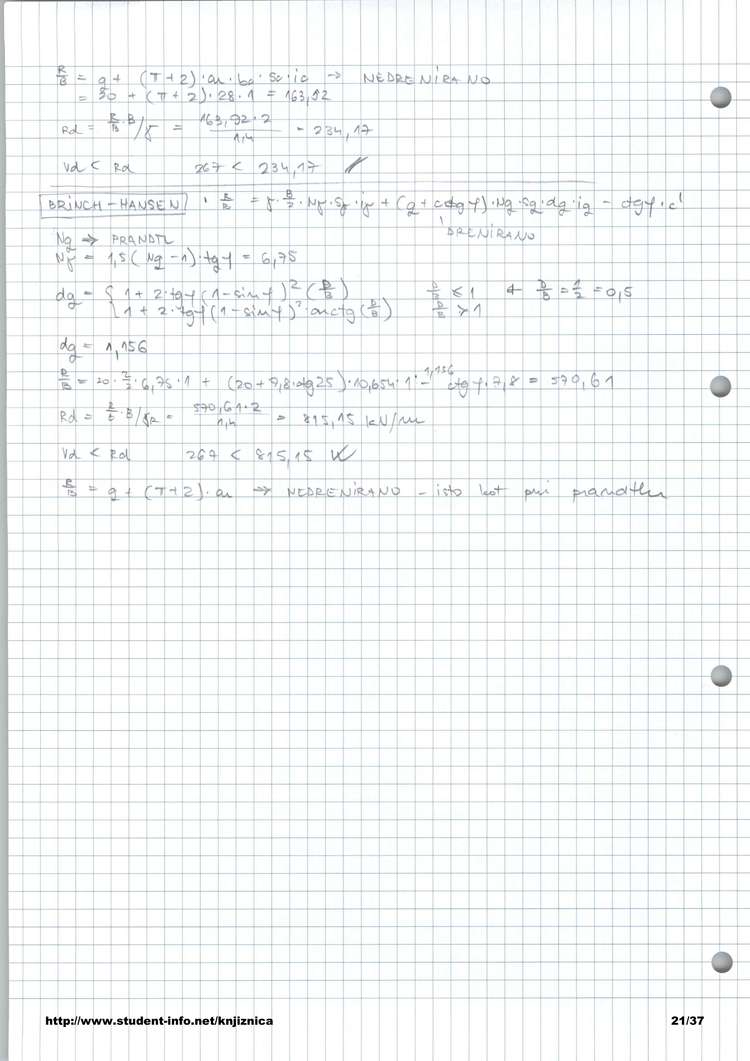 R/B = q + (π+2)·cu·bc·sc·ic → NEDRENIRANO
= 20 + (π+2)·28·1 = 163,92
Rd = R/B·B/γ = 163,92·2 / 1,4 = 234,17
Vd < Rd 267 < 234,17
BRINCH-HANSEN · R/B = γ·B/2·Nγ·sγ·iγ + (q+c'ctgφ)·Nq·sq·dq·iq - ctgφ·c'
DRENIRANO
Nq → PRANDTL
Nγ = 1,5(Nq-1)·tgφ = 6,75
dq = { 1 + 2·tgφ(1-sinφ)²(D/B) D/B ≤ 1 ← D/B = 1/2 = 0,5
{ 1 + 2·tgφ(1-sinφ)²·arctg(D/B) D/B > 1
dq = 1,156
R/B = 20·2/2·6,75·1 + (20+7,8·ctg25)·10,654·1·1,156 - ctgφ·7,8 = 570,61
Rd = R/B·B/γR = 570,61·2 / 1,4 = 815,15 kN/m
Vd < Rd 267 < 815,15 ✓
R/B = q + (π+2)·cu → NEDRENIRANO - isto kot pri prandtlu
http://www.student-info.net/knjiznica 21/37